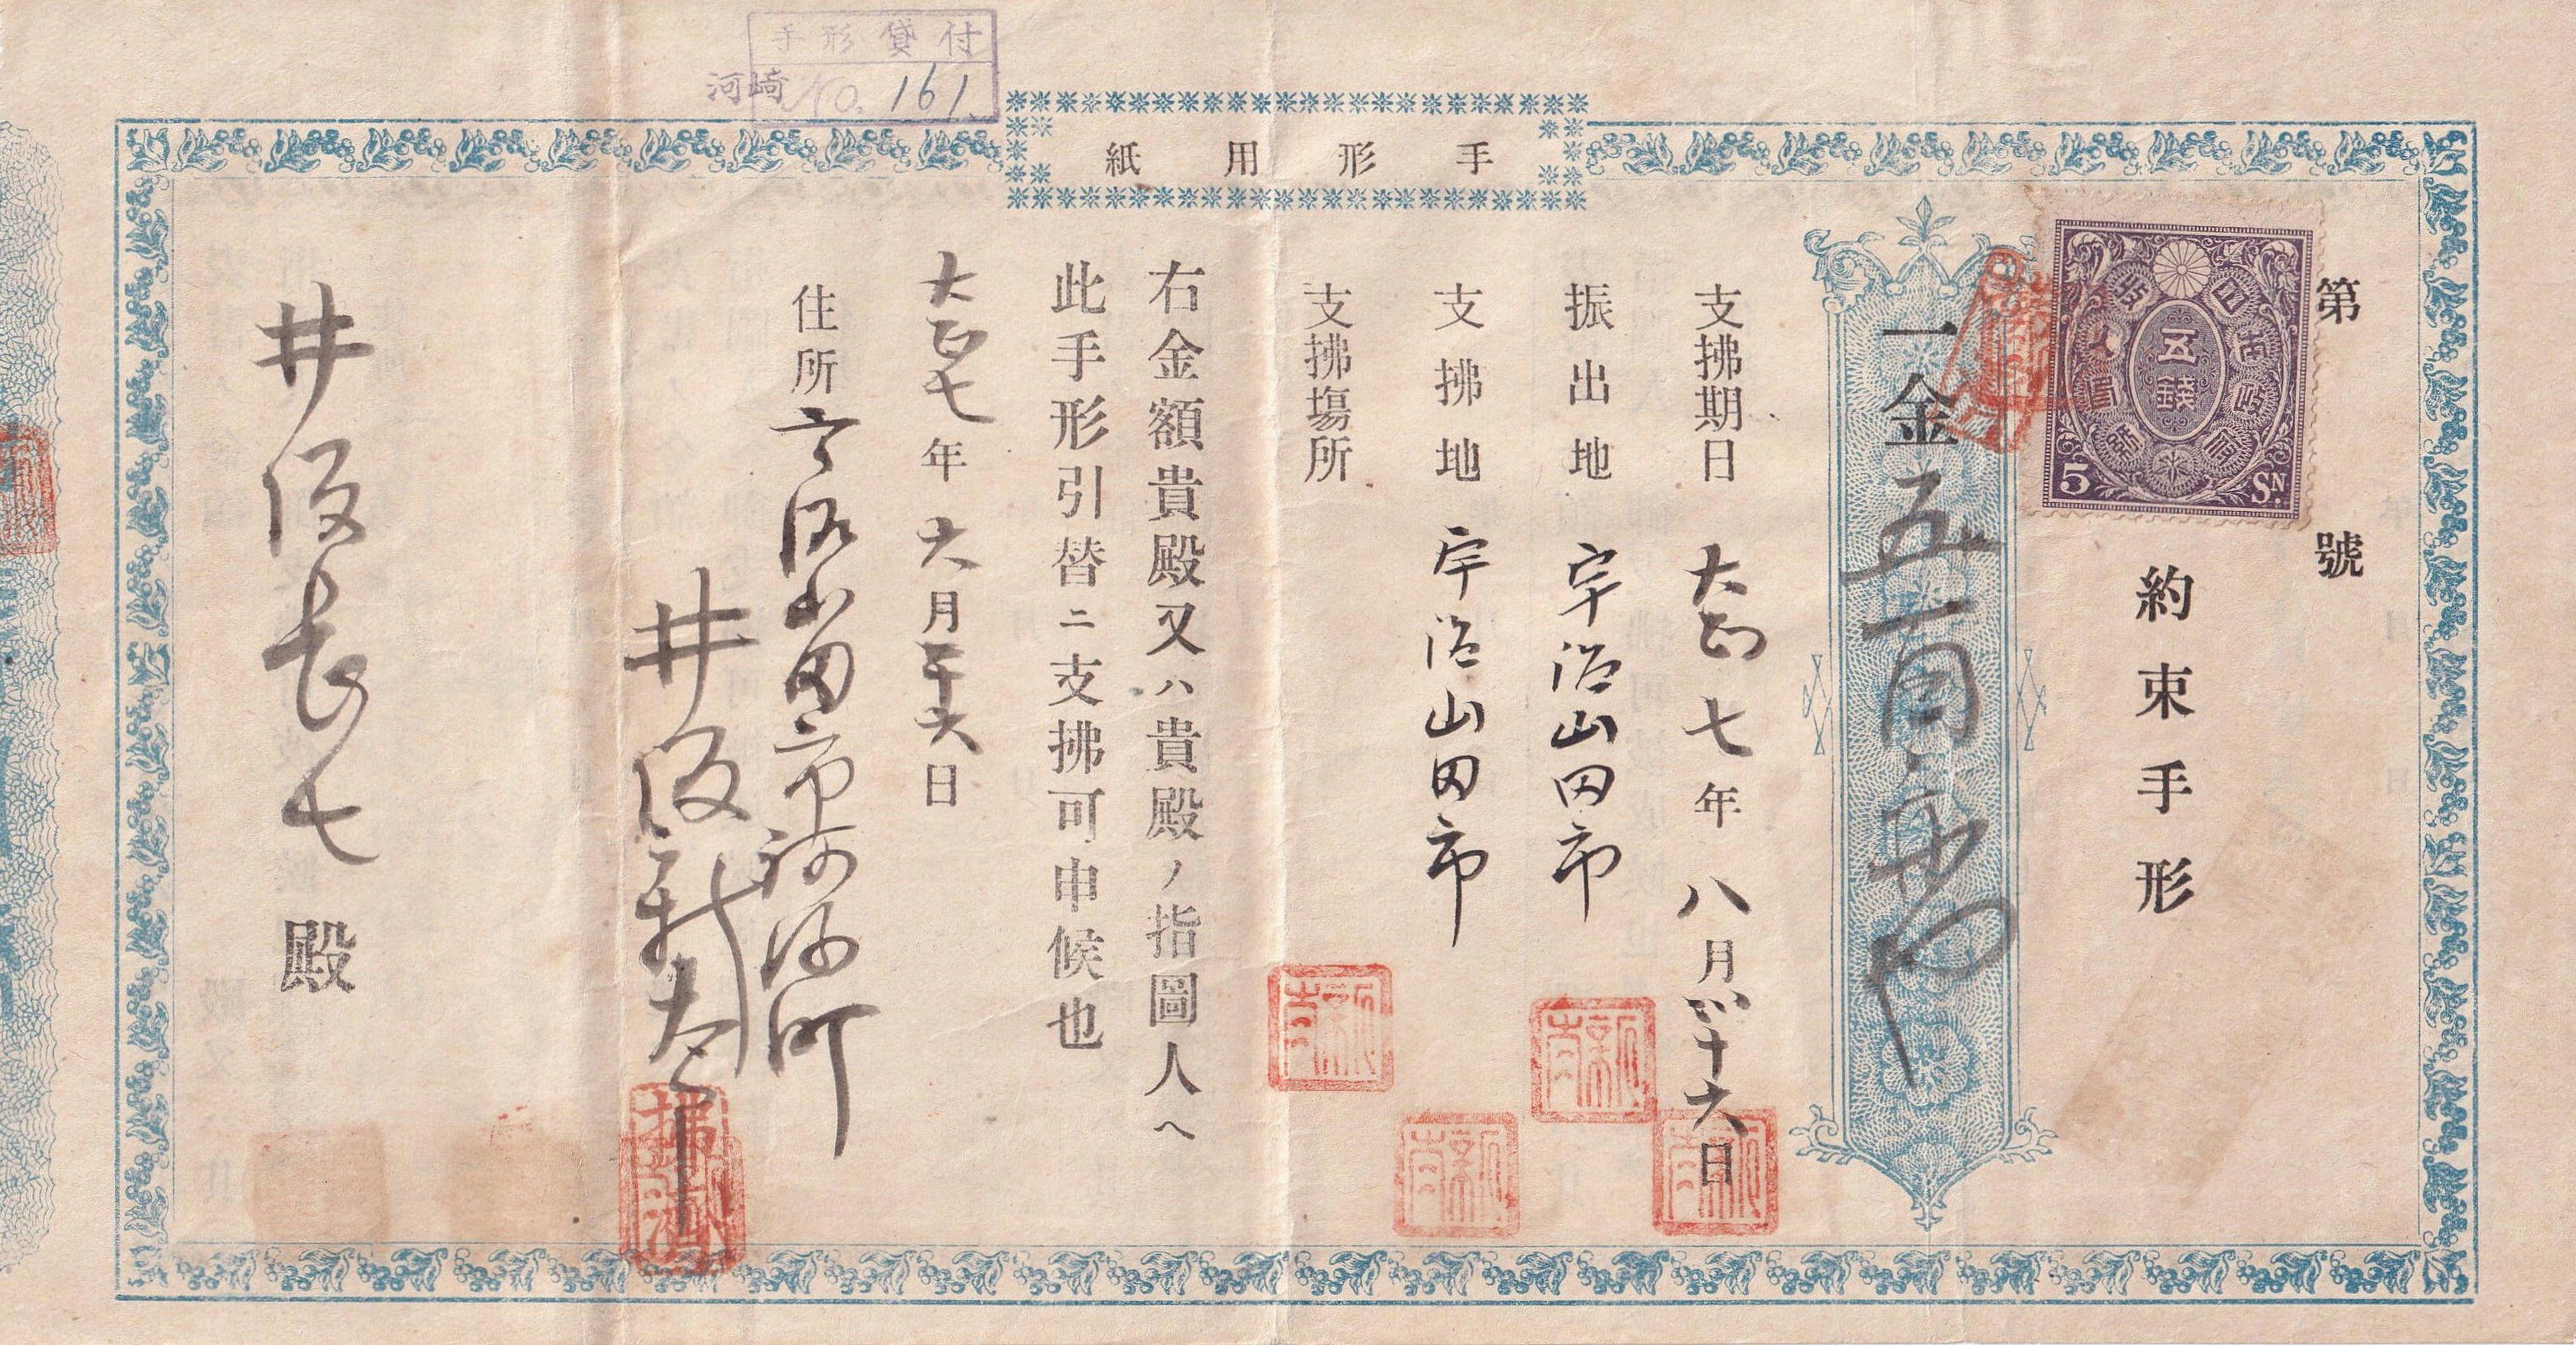 手形貸付
河崎 No. 161.
手形用紙
第 號
約束手形
五錢
5 SN.
一金五百圓也
支拂期日 大正七年八月二十六日
振出地 宇治山田市
支拂地 宇治山田市
支拂塲所
右金額貴殿又ハ貴殿ノ指圖人ヘ
此手形引替ニ支拂可申候也
大正七年六月二十六日
住所 宇治山田市河崎町
井坂
井坂長七殿